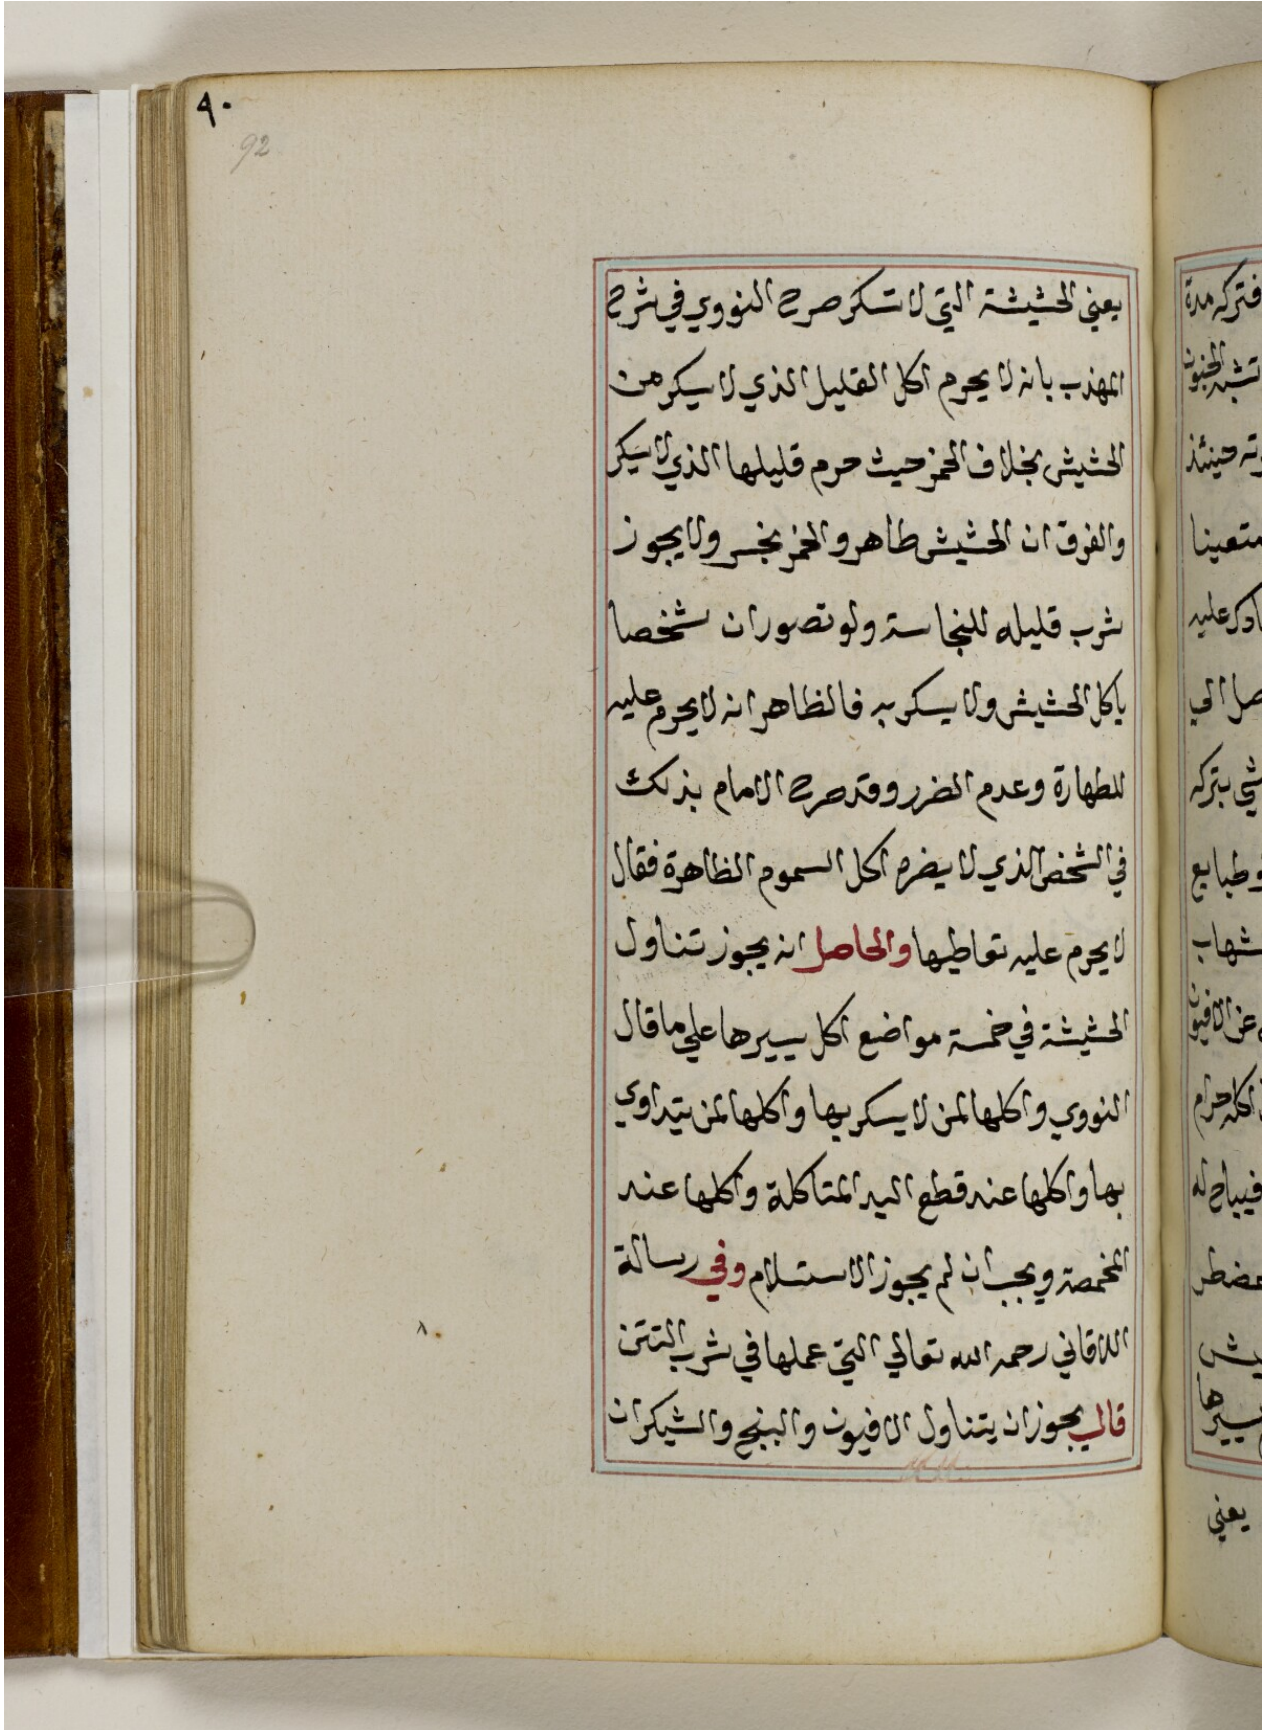 ٩٠
92
يعني الحشيشة التي لا تسكر صرح النووي في شرح
المهذب بانه لا يحرم اكل القليل الذي لا يسكر من
الحشيش بخلاف الخمر حيث حرم قليلها الذي لا يسكر
والفرق ان الحشيش طاهر والخمر نجس ولا يجوز
شرب قليله للنجاسة ولو تصور ان شخصا
ياكل الحشيش ولا يسكر به فالظاهر انه لا يحرم عليه
للطهارة وعدم الضرر وقد صرح الامام بذلك
في الشخص الذي لا يضره اكل السموم الظاهرة فقال
لا يحرم عليه تعاطيها والحاصل انه يجوز تناول
الحشيشة في خمسة مواضع اكل يسيرها علي ما قال
النووي واكلها لمن لا يسكر بها واكلها لمن يتداوي
بها واكلها عند قطع اليد المتاكلة واكلها عند
المخمصة ويجب ان لم يجوز الاستسلام وفي رسالة
اللاقاني رحمه الله تعالي التي عملها في شرب التتن
قال يجوز ان يتناول الافيون والبنج والشيكران
فتركه مدة
حينئذ
عليه
بتركه
وطبايع
شهاب
عن الافيون
اكله حرام
فيباح له
يعني